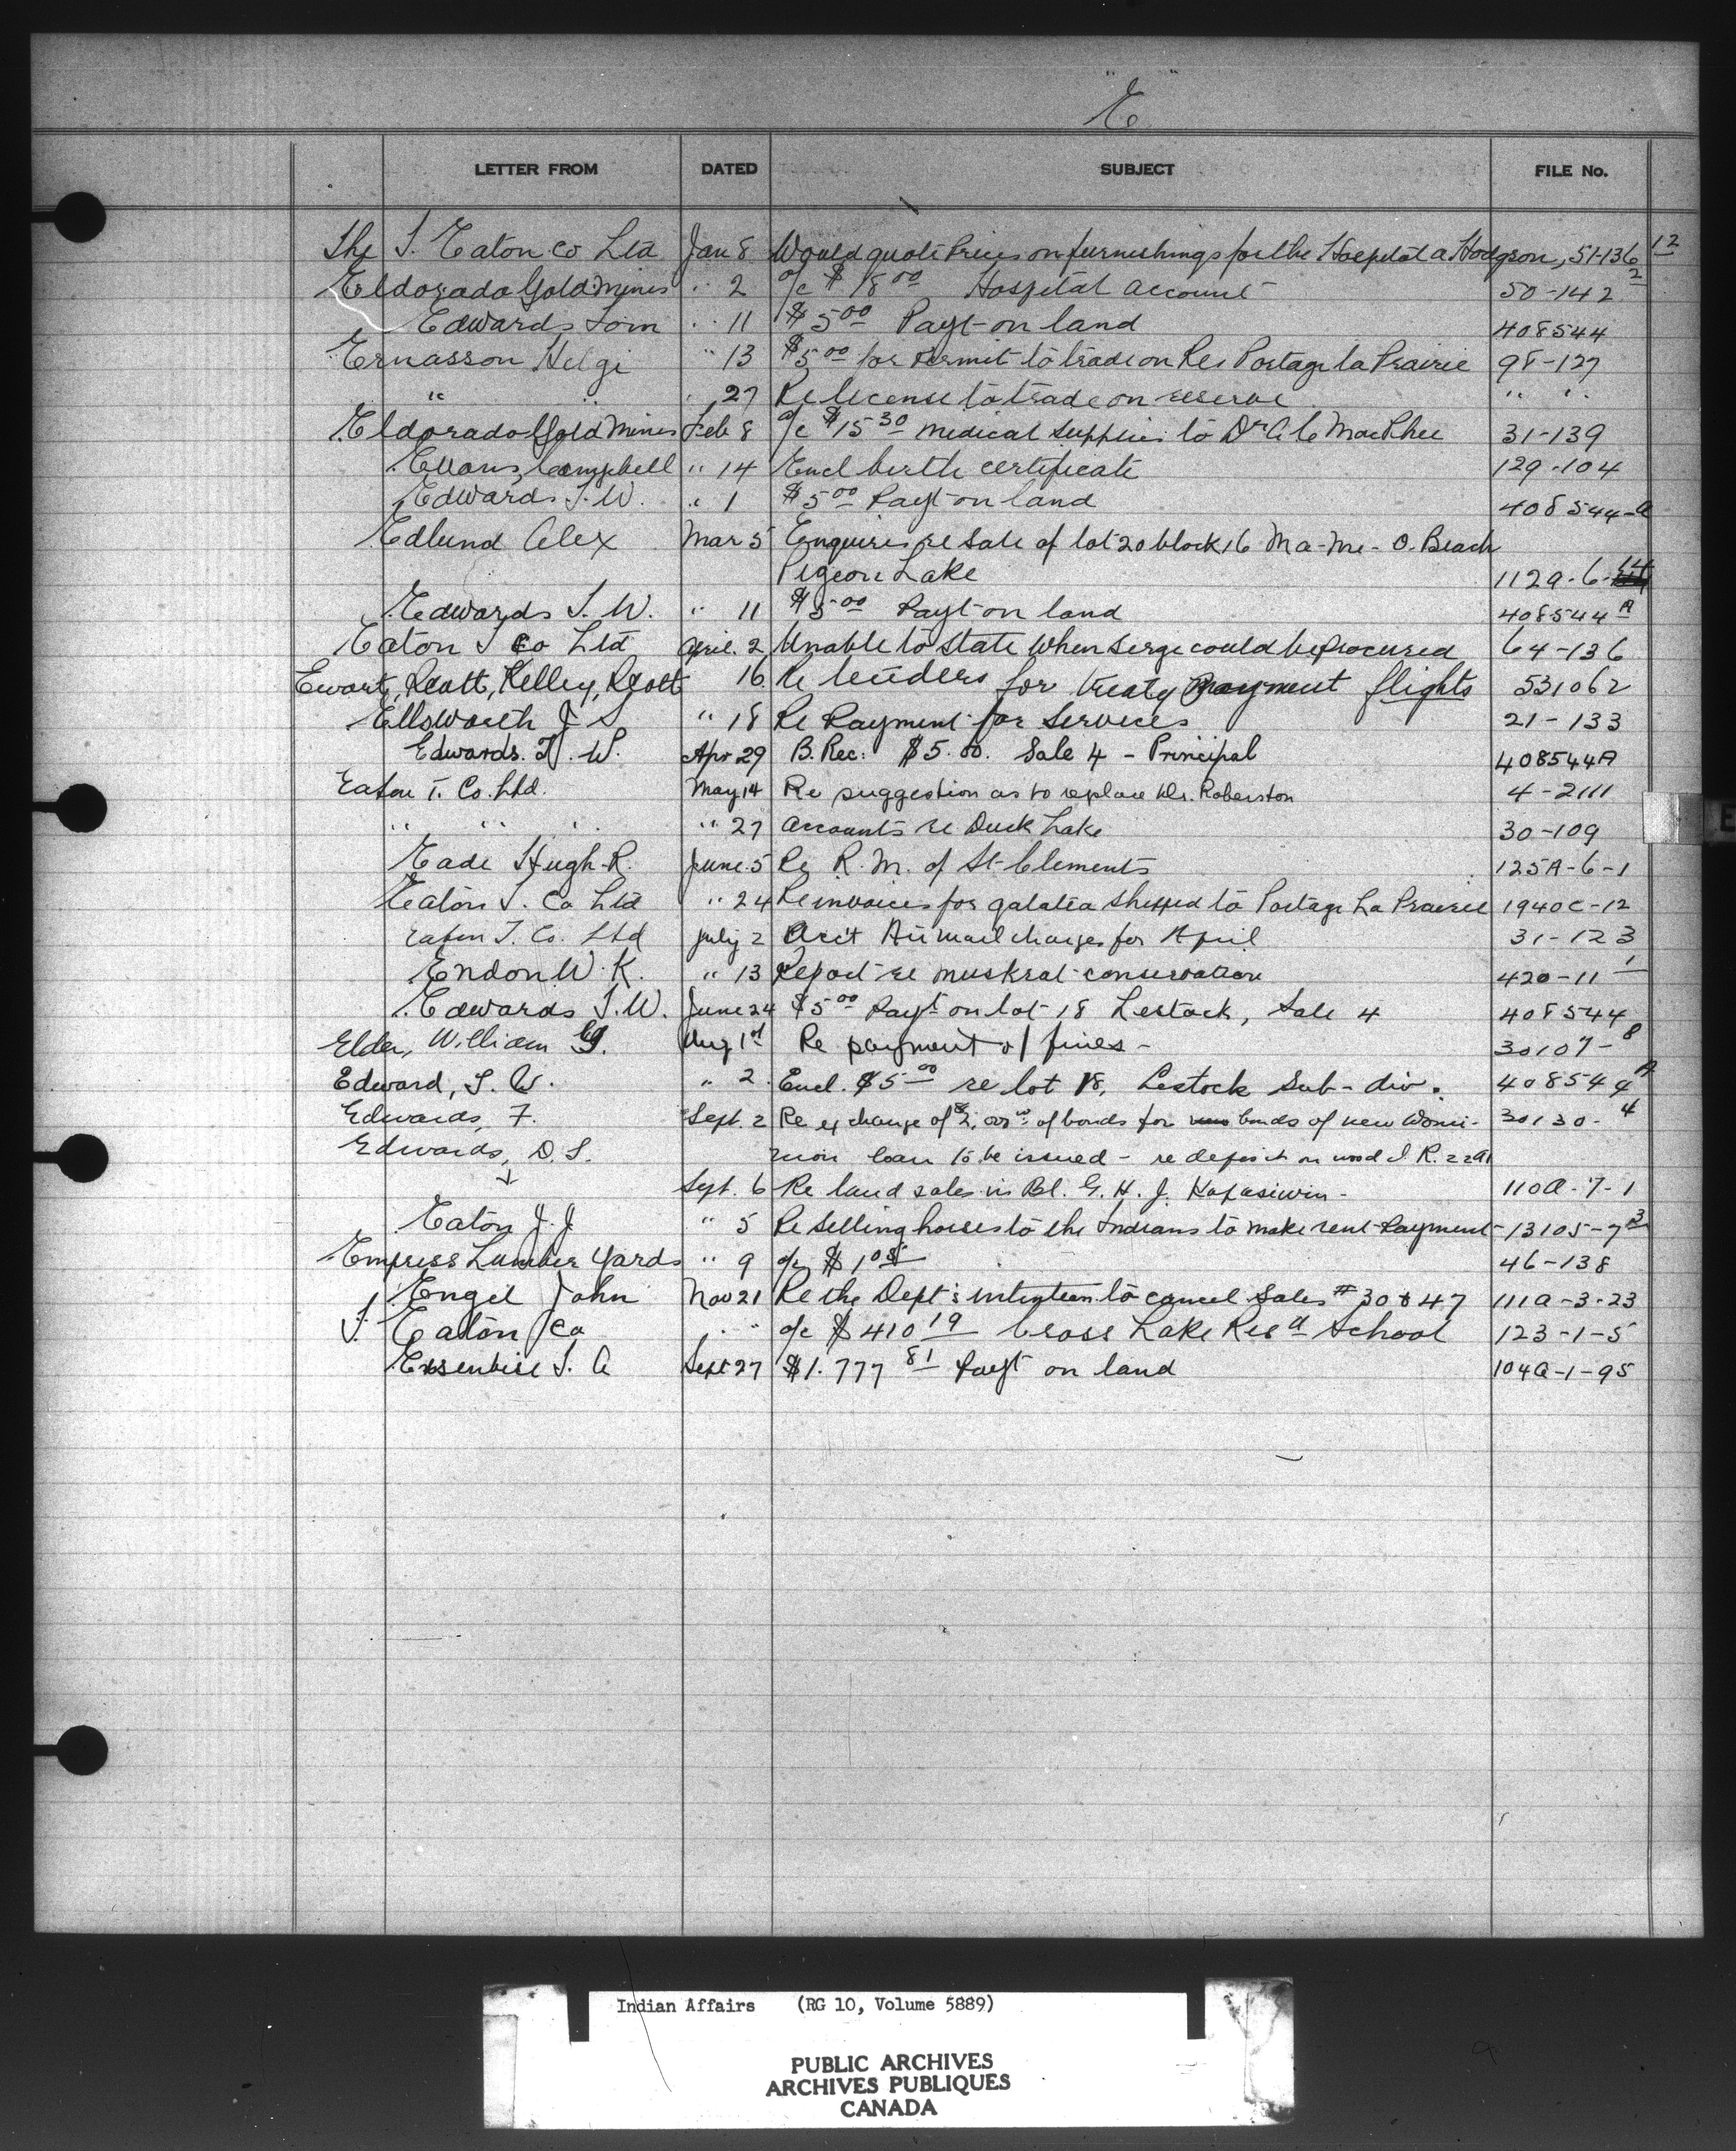 "E"
LETTER FROM DATED SUBJECT FILE No.
The T. Eaton Co Ltd Jan 8 Would quote Prices on furnishings for the Hospital a Hodgson, 51-136 12
Eldorado Gold Mines " 2 a/c $18 00 Hospital account 50-142 2
Edwards Tom " 11 $5 00 Payt on land 408544
Ernasson Helgi " 13 $5 00 for Permit to trade on Res Portage la Prairie 98-127
" " " 27 Re license to trade on reserve " "
Eldorado Gold Mines Feb 8 a/c $15 30 medical supplies to Dr A C MacPhee 31-139
Evans, Campbell " 14 Encl birth certificate 129-104
Edwards T. W. " 1 $5 00 Payt on land 408544-A
Edlund Alex Mar 5 Enquires re Sale of lot 20 block 16 Ma-Me-O. Beach
Pigeon Lake 112a-6-14
Edwards T. W. " 11 $5 00 Payt on land 408544 A
Eaton T Co Ltd April. 2 Unable to State When Serge could be Procured 64-136
Ewart, Scott, Kelley, Scott 16 Re tenders for treaty payment flights 531062
Ellsworth J. S " 18 Re Payment for Services 21-133
Edwards. T. W. Apr 29 B. Rec: $5.00. Sale 4 - Principal 408544A
Eaton T. Co. Ltd. May 14 Re suggestion as to replace Dr. Roberston 4-2111
" " " " 27 Accounts re Duck Lake 30-109
Eade Hugh R. June 5 Re R. M. of St Clements 125A-6-1
Eaton T. Co Ltd " 24 Re invoices for galatea shipped to Portage La Prairie 1940C-12
Eaton T. Co. Ltd July 2 Acc't Airmail charges for April 31-123
Endon W. K. " 13 Report re muskrat conservation 420-11 1
Edwards T. W. June 24 $5 00 Payt on lot 18 Lestock, Sale 4 408544
Elder, William G. Aug 1st Re payment of fines - 30107-8
Edward, T. W. " 2. Encl. $5 00 re lot 18, Lestock Sub-div. 408544 A
Edwards, F. Sept. 2 Re exchange of of bonds for bonds of new Domi- 30130-4
Edwards, D. S. nion loan to be issued - re deposit on wood I. R. 229
Sept. 6 Re land sales in Bl. G. H. J. Kapasiwin - 110A-7-1
Eaton J. J " 5 Re Selling horses to the Indians to make rent Payment 13105-7 3
Empress Lumber Yards " 9 a/c $1 05 46-138
Engel John Nov 21 Re the Dept's intention to cancel Sales # 30 & 47 111a-3-23
T. Eaton Co " " a/c $410 19 Cross Lake Resd School 123-1-5
T. A Sept 27 $1.777 81 Payt on land 104a-1-95
E
Indian Affairs (RG 10, Volume 5889)
PUBLIC ARCHIVES
ARCHIVES PUBLIQUES
CANADA